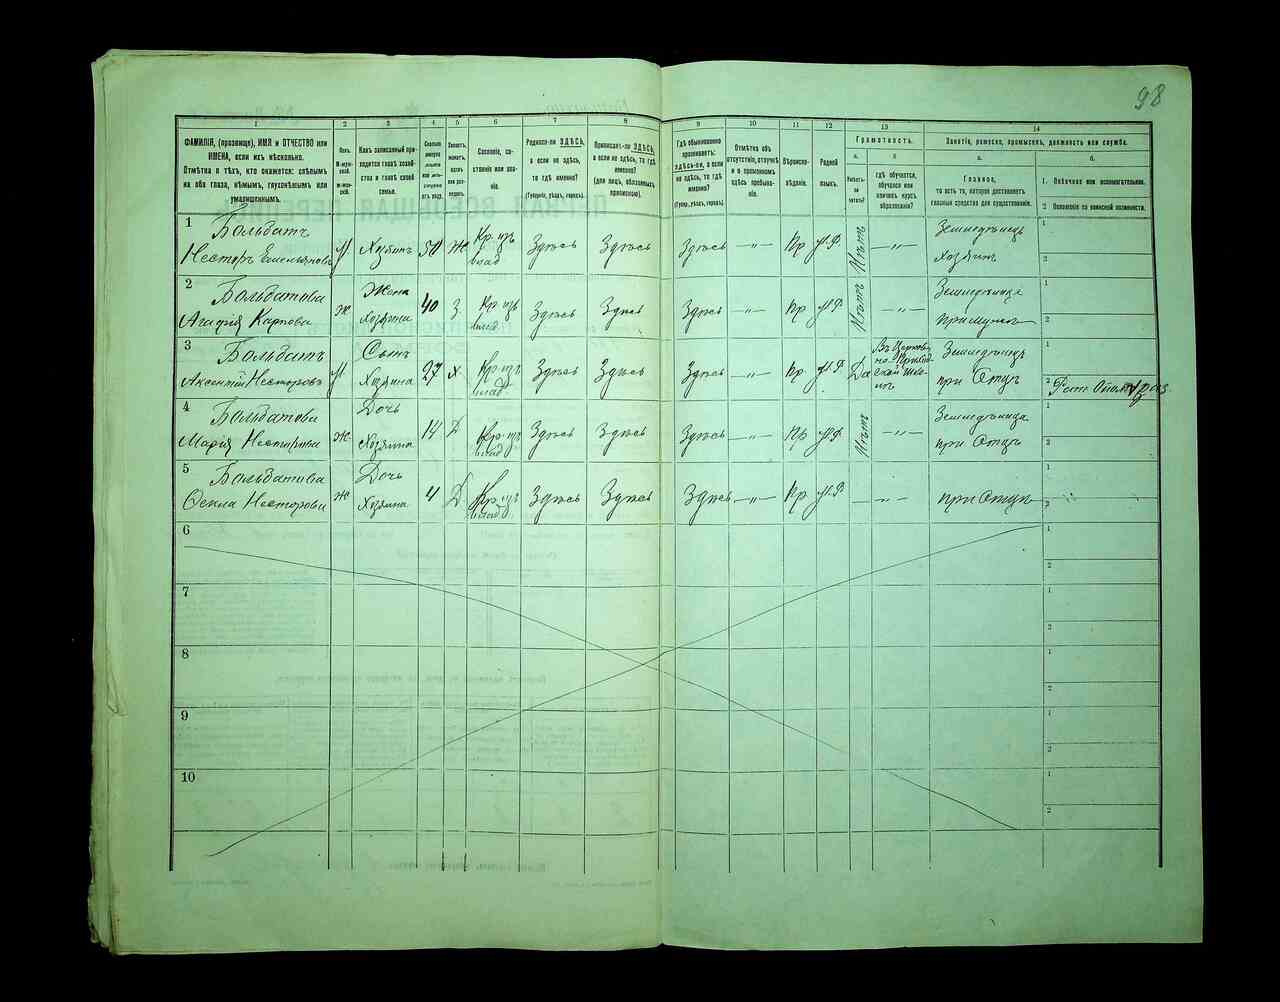 98
1
2
3
4
5
6
7
8
9
10
11
12
13
14
ФАМИЛІЯ, (прозвище), ИМЯ и ОТЧЕСТВО или
ИМЕНА, если ихъ нѣсколько.
Отмѣтка о тѣхъ, кто окажется: слѣпымъ
на оба глаза, нѣмымъ, глухонѣмымъ или
умалишеннымъ.
Полъ.
М-муж-
ской.
Ж-жен-
скій.
Какъ записанный при-
ходится главѣ хозяй-
ства и главѣ своей
семьи.
Сословіе, со-
стояніе или зва-
ніе.
Родился-ли ЗДѢСЬ,
а если не здѣсь,
то гдѣ именно?
(Губернія, уѣздъ, городъ).
Приписанъ-ли ЗДѢСЬ,
а если не здѣсь, то гдѣ
именно?
(для лицъ, обязанныхъ
припискою).
Гдѣ обыкновенно
проживаетъ:
ЗДѢСЬ-ЛИ, а если
не здѣсь, то гдѣ
именно?
(Губер., уѣздъ, городъ).
Отмѣтка объ
отсутствіи, отлучкѣ
и о временномъ
здѣсь пребыва-
ніи.
Вѣроиспо-
вѣданіе.
Родной
языкъ.
Грамотность.
а.
Умѣетъ-
ли
читать?
гдѣ обучается,
обучался или
кончилъ курсъ
образованія?
Занятіе, ремесло, промыселъ, должность или служба.
а.
Главное,
то есть то, которое доставляетъ
главныя средства для существованія.
б.
1. Побочное или вспомогательное.
2 Положеніе по воинской повинности.
1
Больбатъ
Несторъ Емельяновъ М Хозяинъ 50 Ж Кр. изъ
влад Здѣсь Здѣсь Здѣсь —"— Пр М.Р Нѣтъ —"— Земледѣлецъ
Хозяинъ
1
2
2
Больбатова
Агафія Карпова Ж Жена
Хозяина 40 З Кр изъ
влад. Здѣсь Здѣсь Здѣсь —"— Пр М.Р Нѣтъ —"— Земледѣлица
при мужѣ
1
2
3
Больбатъ
Аксентій Несторовъ М Сынъ
Хозяина 27 Х. Кр изъ
влад. Здѣсь Здѣсь Здѣсь —"— Пр М.Р Да Въ Церков-
но-Приход-
ской Шко-
лѣ Земледѣлецъ
при Отцѣ
1
2
4
Больбатова
Марія Несторова Ж Дочь
Хозяина 14 Д Кр. изъ
влад Здѣсь Здѣсь Здѣсь —"— Пр М.Р Нѣтъ —"— Земледѣлица
при Отцѣ
1
2
5
Больбатова
Фекла Несторова Ж Дочь
Хозяина 4 Д Кр. изъ
влад Здѣсь Здѣсь Здѣсь —"— Пр М.Р —"— при Отцѣ
1
2
6
1
2
7
1
2
8
1
2
9
1
2
10
1
2